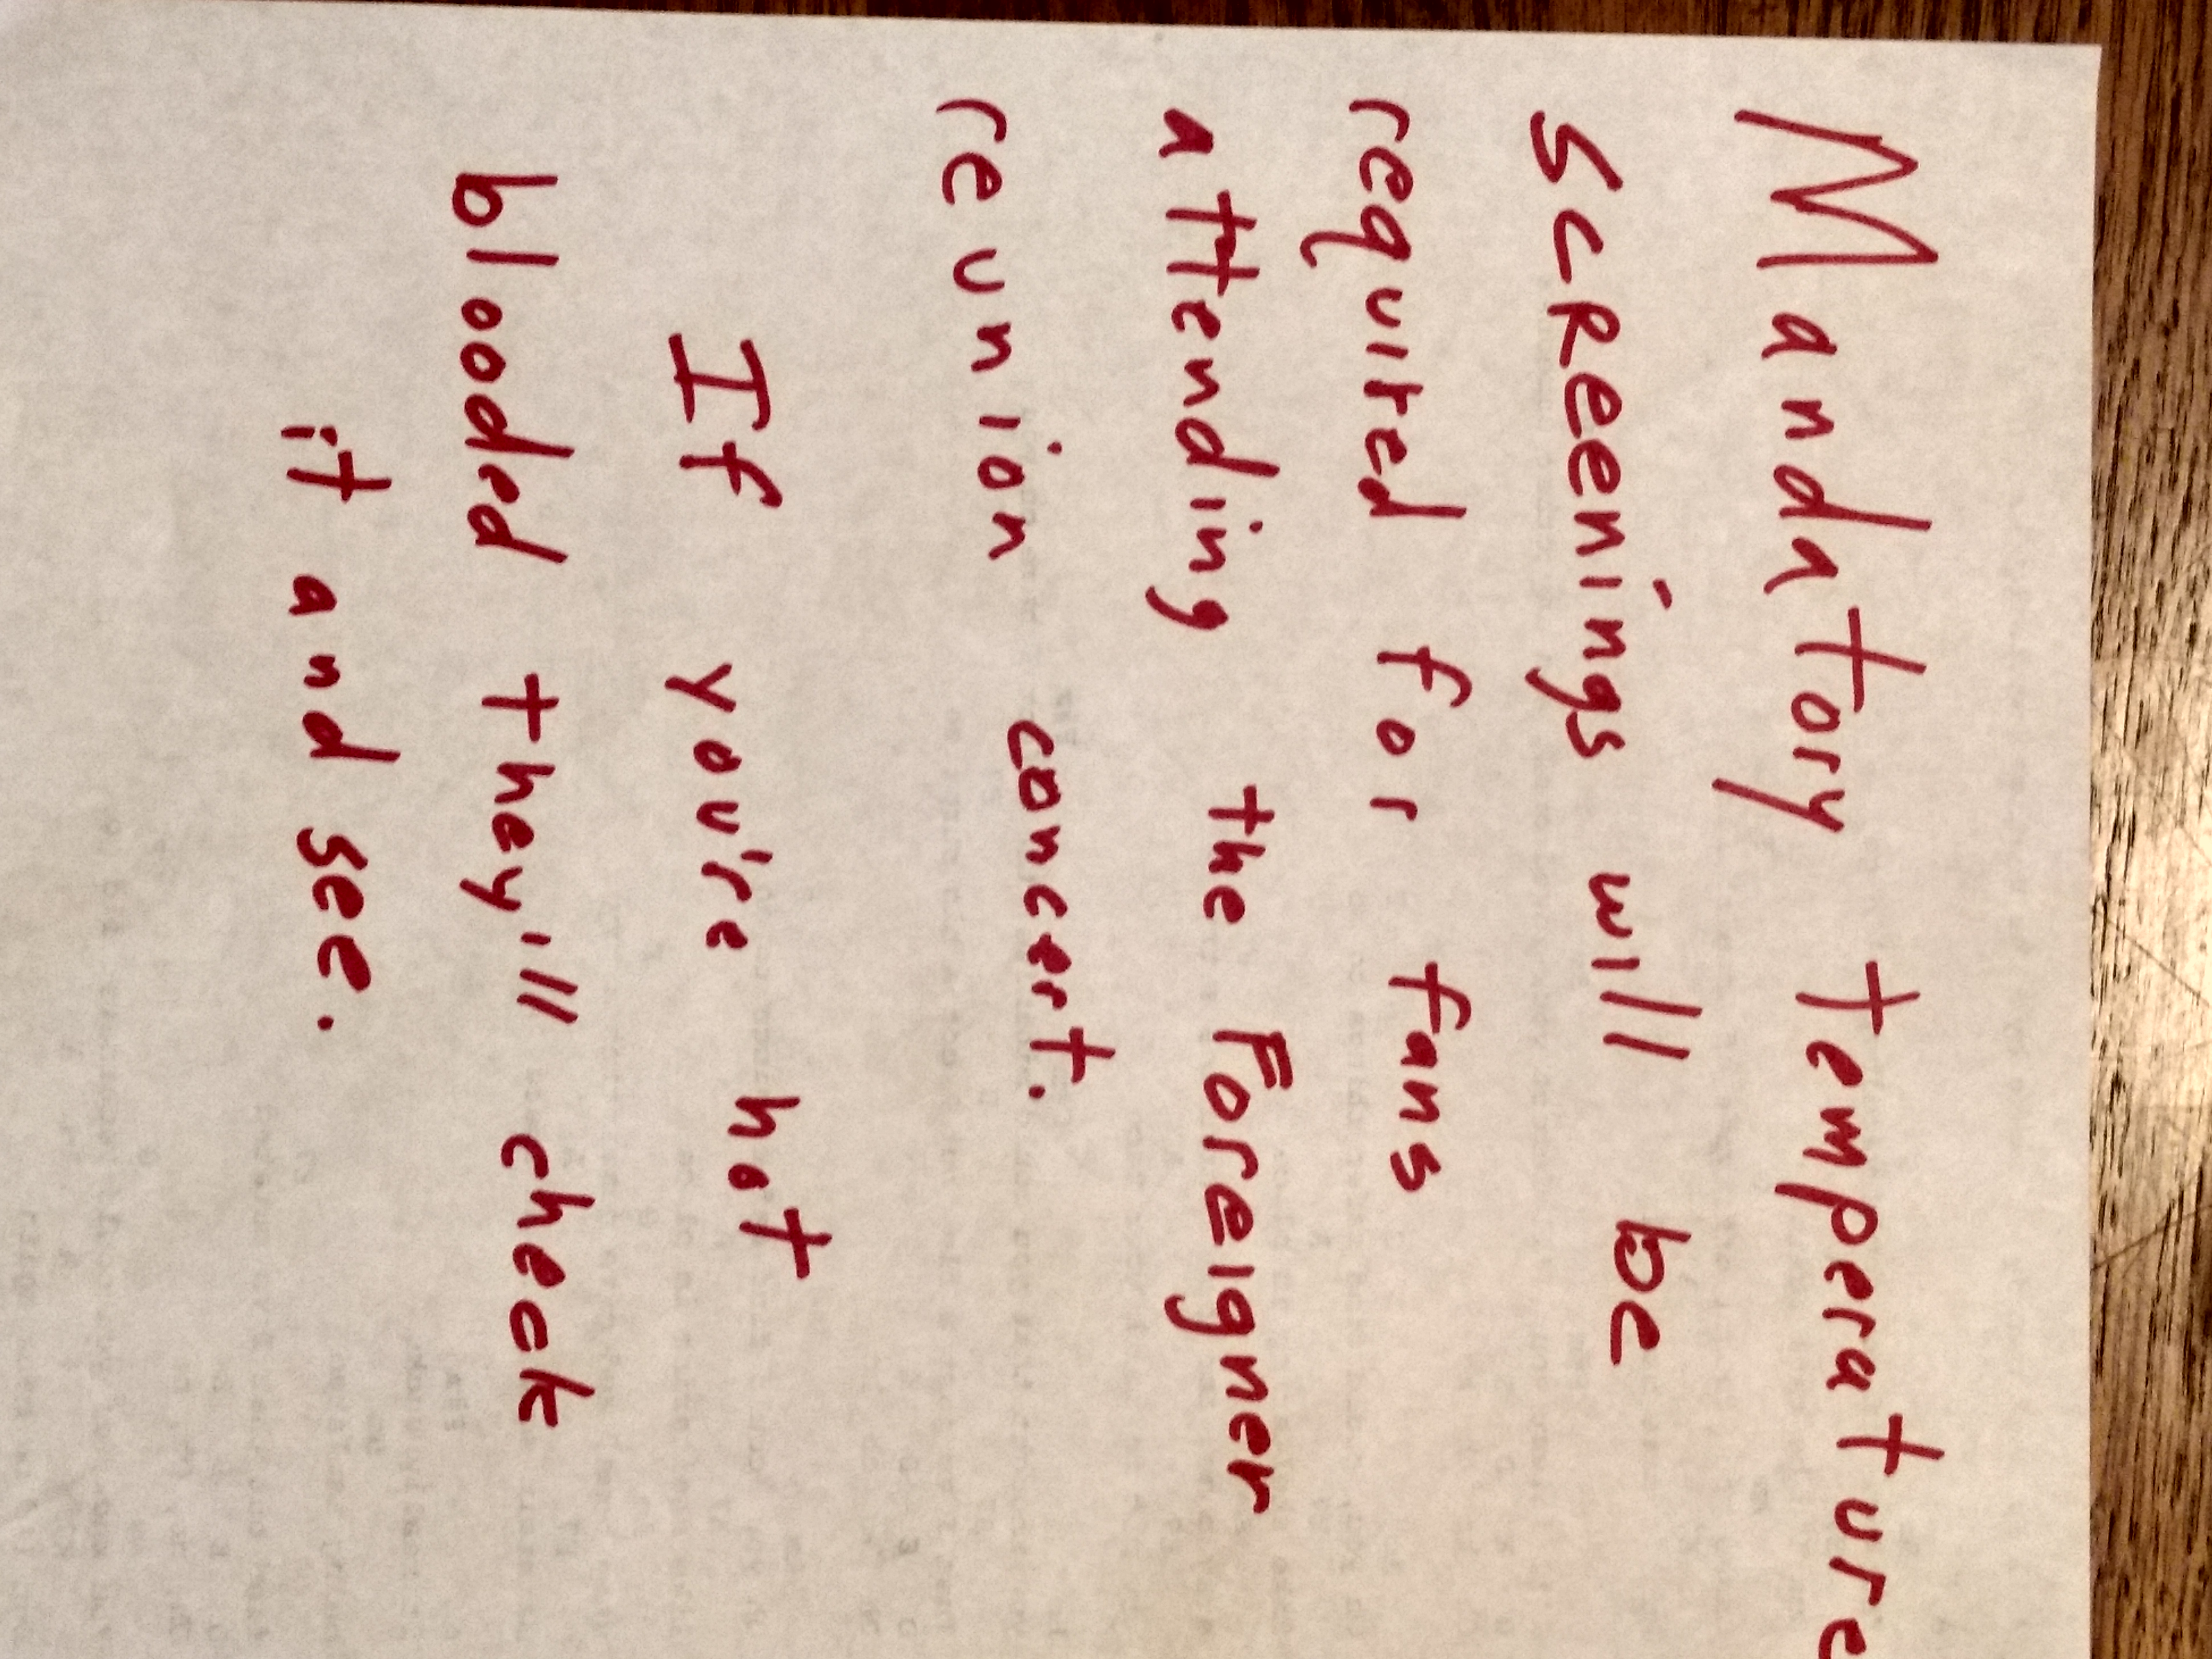 Mandatory temperature
Screenings will be
required for fans
attending the Foreigner
reunion concert.
If you're hot
blooded they'll check
it and see.